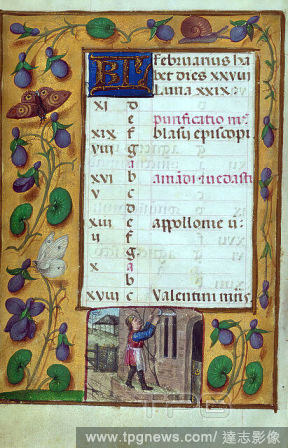 KL Februarius ha
bet dies XXVIII
Luna XXIX
xi d
e purificatio
xix f blasii episcopi
viii g
a
xvi b amādi uedasti
v c
d
xiii e
ii f appollonie
g
x a
b
xviii c Valentini
TPG
www.tpgnews.com/ 達志影像